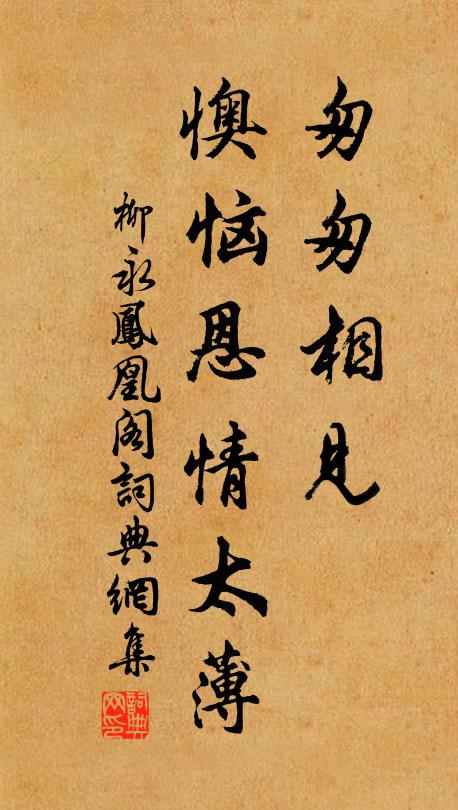 匆匆相見
懊恼恩情太薄
柳永鳳凰阁詞典網集
詞典網印